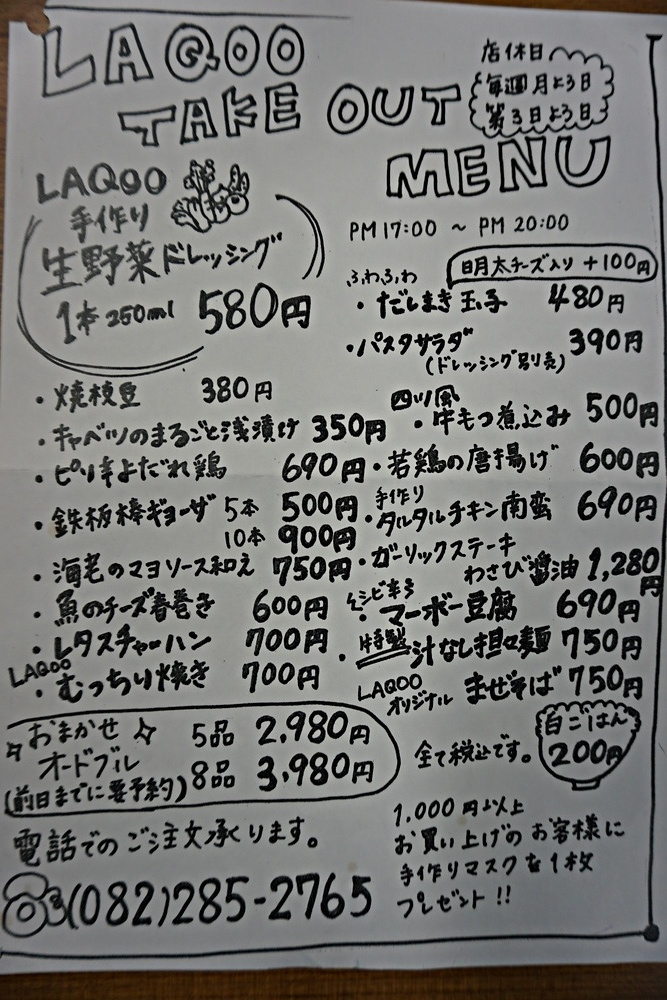 LAQOO
TAKE OUT
MENU
店休日
毎週月よう日
第3日よう日
LAQOO
手作り
生野菜ドレッシング
1本 250ml 580円
PM 17:00 ~ PM 20:00
明太チーズ入り +100円
ふわふわ
・だしまき玉子 480円
・パスタサラダ 390円
(ドレッシング別売)
・焼枝豆 380円
・キャベツのまるごと浅漬け 350円
・ピリ辛よだれ鶏 690円
・鉄板棒ギョーザ 5本 500円
10本 900円
・海老のマヨソース和え 750円
・魚のチーズ春巻き 600円
・レタスチャーハン 700円
LAQOO
・むっちり焼き 700円
四川風
・牛もつ煮込み 500円
・若鶏の唐揚げ 600円
手作り
・タルタルチキン南蛮 690円
・ガーリックステーキ
わさび醤油 1,280円
シビ辛
・マーボー豆腐 690円
・特製 汁なし担々麺 750円
LAQOO
オリジナル まぜそば 750円
おまかせ
オードブル
(前日までに要予約)
5品 2,980円
8品 3,980円
全て税込です。
白ごはん
200円
電話でのご注文承ります。
(082)285-2765
1,000円以上
お買い上げのお客様に
手作りマスクを1枚
プレゼント!!